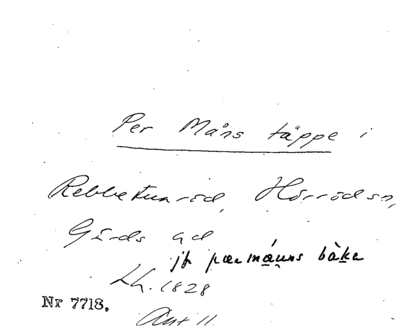 Per Måns täppe i
Rebbetuaröd, Hörrödsn,
Gärds hd
jfr pær måuns bàka
Lh. 1828
Nr 7718.
Ant 11.